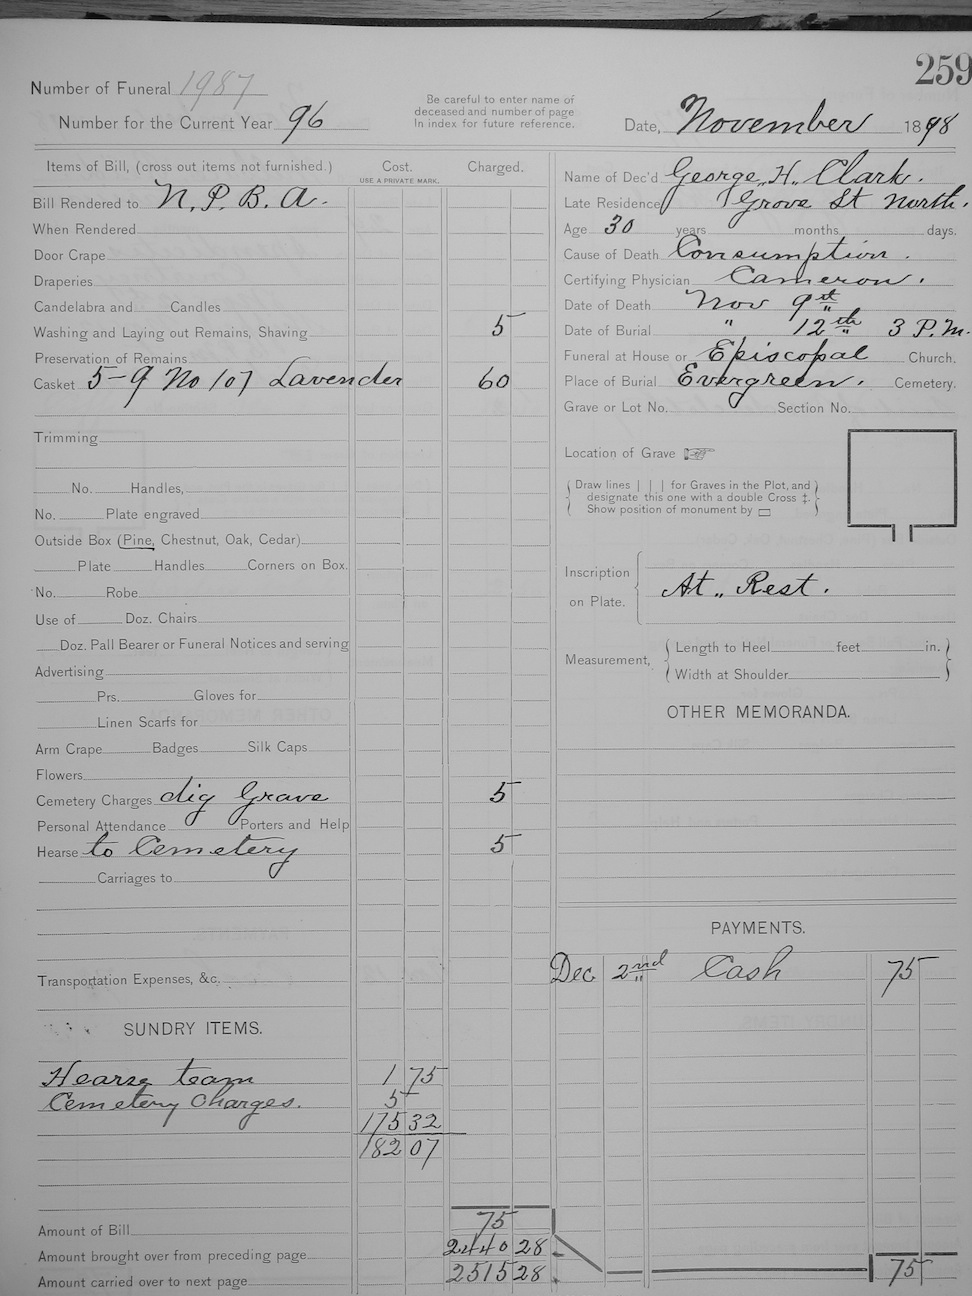 259
Number of Funeral 1987
Number for the Current Year 96
Be careful to enter name of
deceased and number of page
In index for future reference.
Date, November 1898
Items of Bill, (cross out items not furnished.) Cost. Charged.
USE A PRIVATE MARK.
Bill Rendered to N. P. B. A.
When Rendered
Door Crape
Draperies
Candelabra and Candles
Washing and Laying out Remains, Shaving 5
Preservation of Remains
Casket 5-9 No 107 Lavender 60
Trimming
No. Handles,
No. Plate engraved
Outside Box (Pine, Chestnut, Oak, Cedar)
Plate Handles Corners on Box.
No. Robe
Use of Doz. Chairs
Doz. Pall Bearer or Funeral Notices and serving
Advertising
Prs. Gloves for
Linen Scarfs for
Arm Crape Badges Silk Caps
Flowers
Cemetery Charges dig Grave 5
Personal Attendance Porters and Help
Hearse to Cemetery 5
Carriages to
Transportation Expenses, &c.
SUNDRY ITEMS.
Hearse team 1 75
Cemetery Charges. 5
175 32
182 07
Amount of Bill 75
Amount brought over from preceding page 2440 28
Amount carried over to next page 2515 28
Name of Dec'd George, H, Clark.
Late Residence Grove St North.
Age 30 years months days.
Cause of Death Consumption.
Certifying Physician Cameron.
Date of Death Nov 9st
Date of Burial " 12th 3 P.M.
Funeral at House or Episcopal Church.
Place of Burial Evergreen. Cemetery.
Grave or Lot No. Section No.
Location of Grave
Draw lines | | | for Graves in the Plot, and
designate this one with a double Cross ‡.
Show position of monument by
Inscription
on Plate.
At,, Rest.
Measurement,
Length to Heel feet in.
Width at Shoulder
OTHER MEMORANDA.
PAYMENTS.
Dec 2nd Cash 75
75